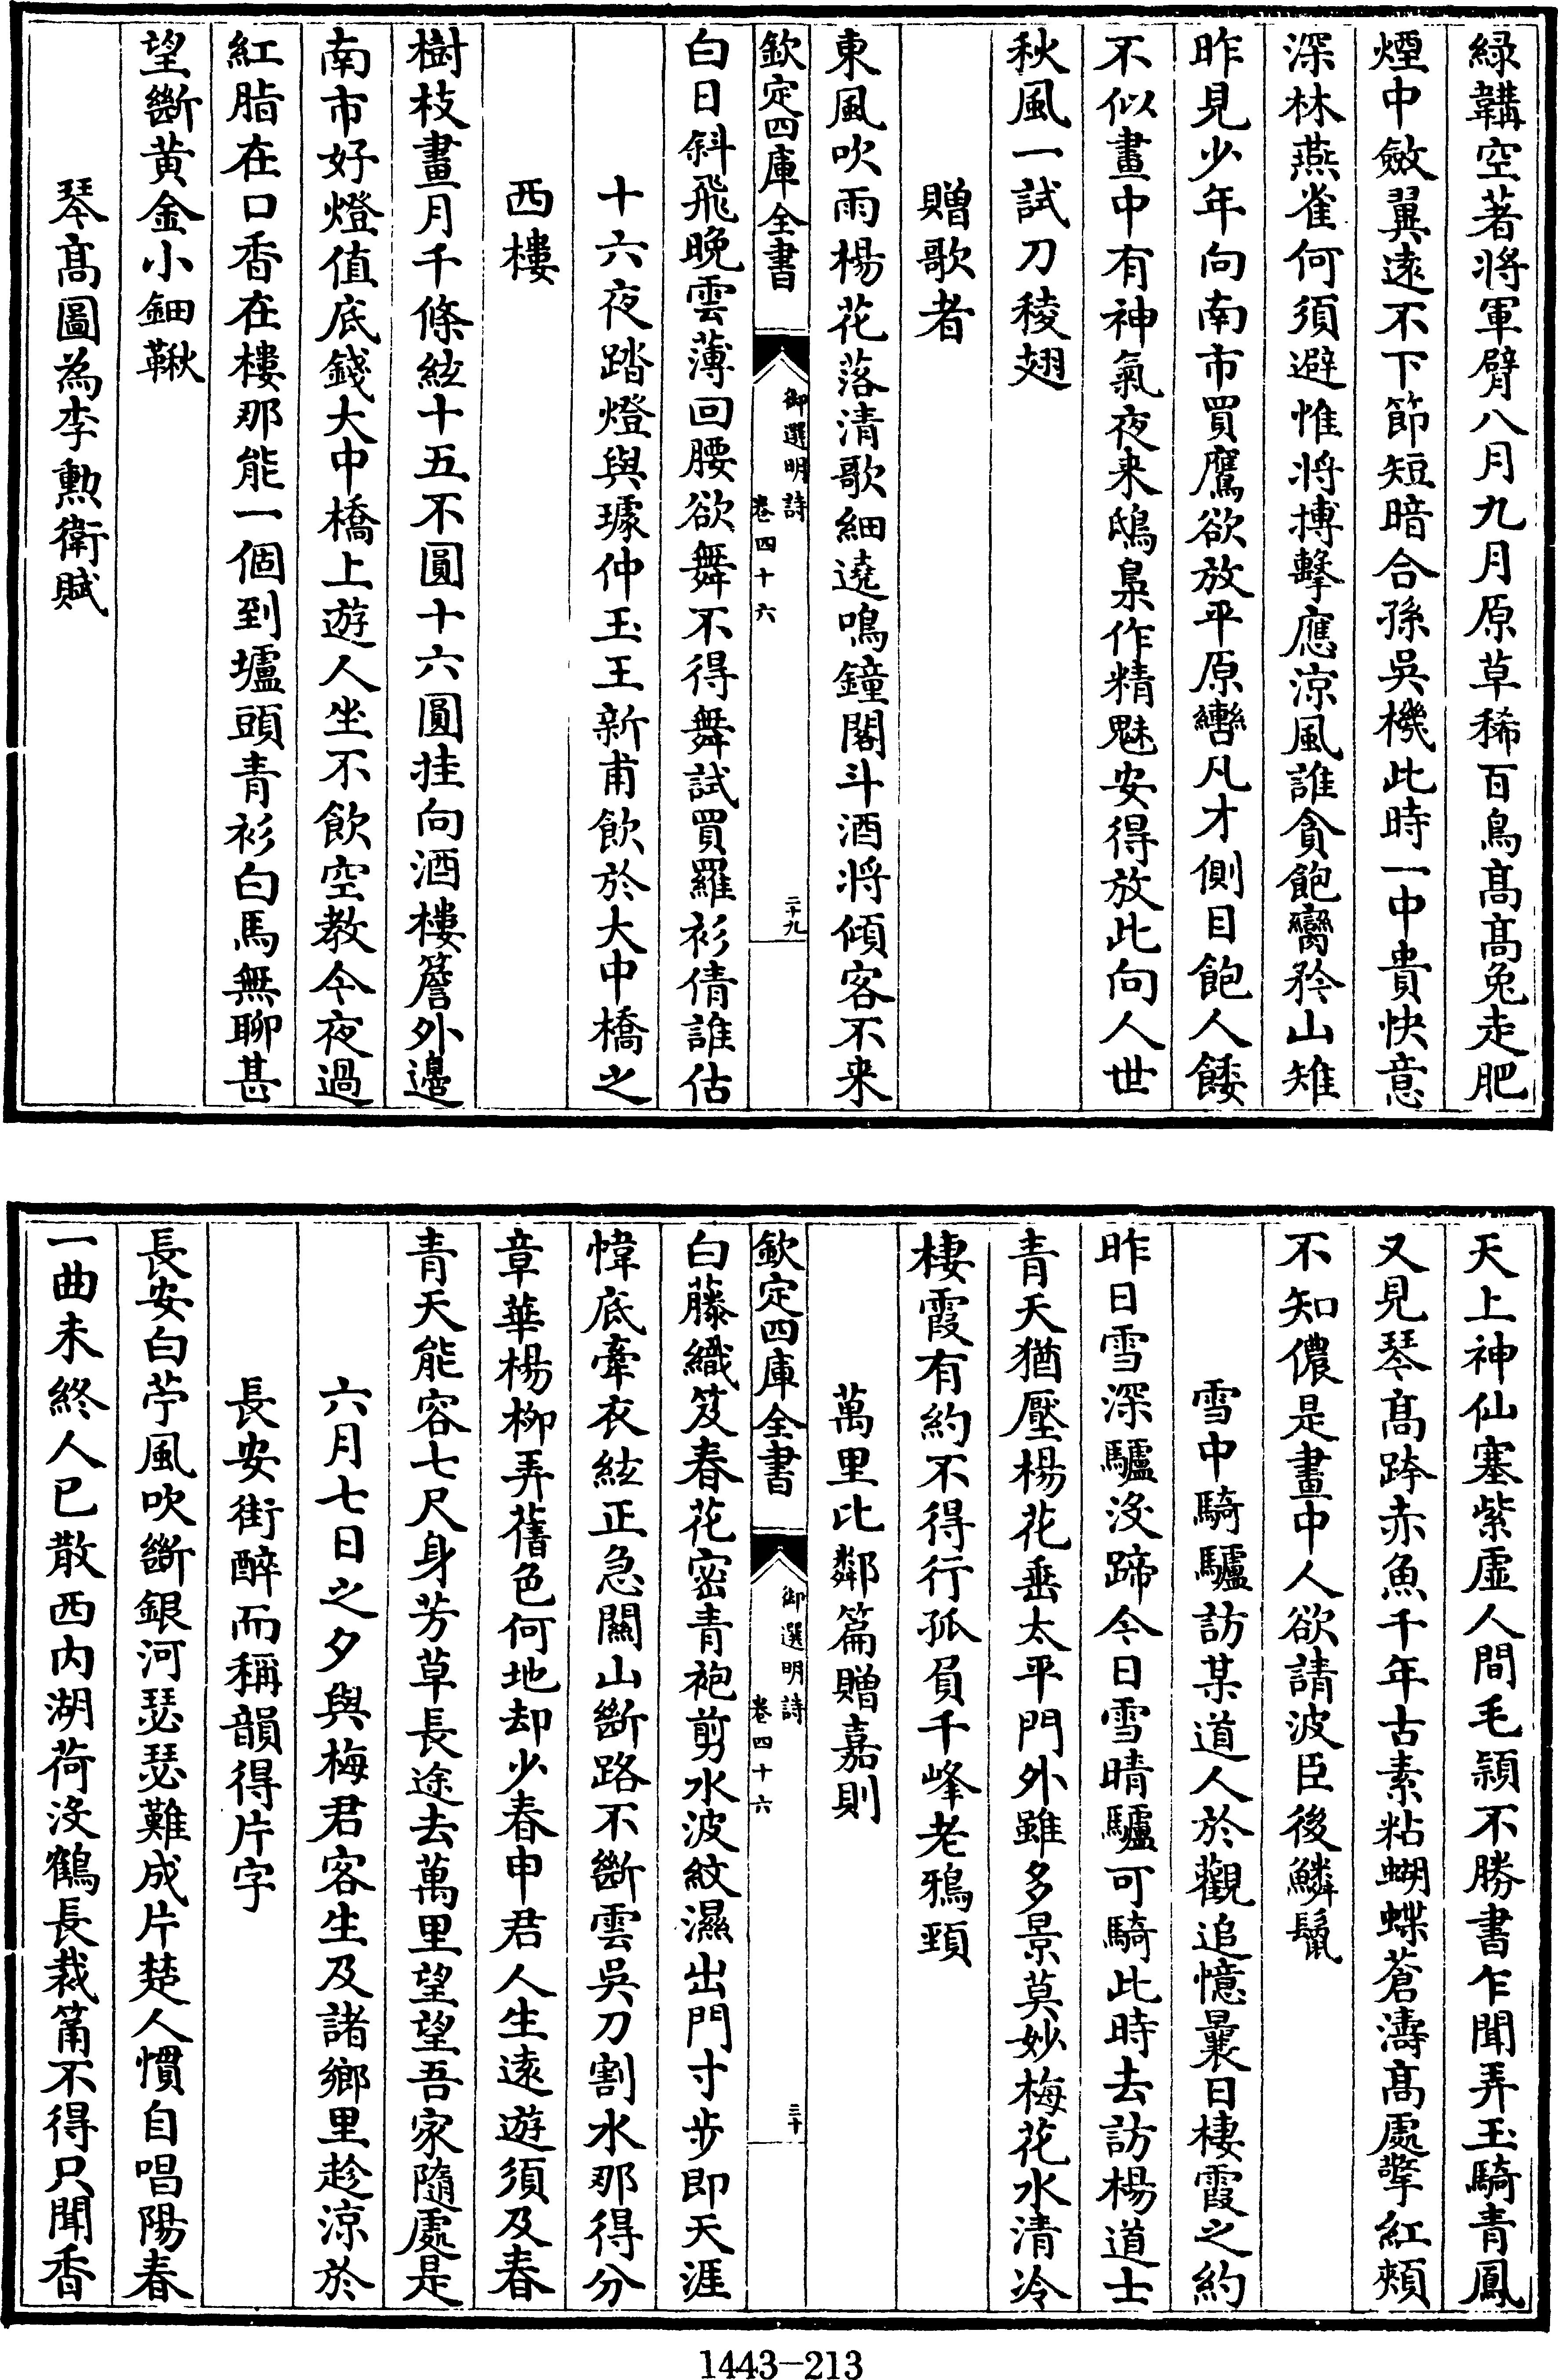 緑韝空著将軍臂八月九月原草稀百鳥髙髙兔走肥
煙中斂翼遠不下節短暗合孫吳機此時一中貴快意
深林燕雀何須避惟将搏擊應涼風誰貪飽臠矜山雉
昨見少年向南市買鷹欲放平原轡凡才側目飽人餧
不似畫中有神氣夜来鴟梟作精魅安得放此向人世
秋風一試刀稜翅
贈歌者
東風吹雨楊花落清歌細遶鳴鐘閣斗酒将傾客不来
欽定四庫全書
御選明詩
卷四十六
二十九
白日斜飛晚雲薄回腰欲舞不得舞試買羅衫倩誰估
十六夜踏燈與璩仲玉王新甫飲於大中橋之
西樓
樹枝畫月千條絃十五不圓十六圓挂向酒樓簷外邊
南市好燈值底錢大中橋上遊人坐不飲空教今夜過
紅脂在口香在樓那能一個到壚頭青衫白馬無聊甚
望斷黄金小鈿鞦
琴髙圖為李勲衛賦
天上神仙塞紫虚人間毛穎不勝書乍聞弄玉騎青鳳
又見琴髙跨赤魚千年古素粘蝴蝶蒼濤髙處擎紅頰
不知儂是畫中人欲請波臣後鱗鬛
雪中騎驢訪某道人於觀追憶曩日棲霞之約
昨日雪深驢沒蹄今日雪晴驢可騎此時去訪楊道士
青天猶壓楊花垂太平門外雖多景莫妙梅花水清冷
棲霞有約不得行孤負千峰老鴉頸
萬里比鄰篇贈嘉則
欽定四庫全書
御選明詩
卷四十六
三十
白藤織笈春花密青袍剪水波紋濕出門寸步即天涯
幃底牽衣絃正急關山斷路不斷雲吳刀割水那得分
章華楊柳弄舊色何地却少春申君人生遠遊須及春
青天能容七尺身芳草長途去萬里望望吾家隨處是
六月七日之夕與梅君客生及諸鄉里趁涼於
長安街醉而稱韻得片字
長安白苧風吹斷銀河瑟瑟難成片楚人慣自唱陽春
一曲未終人已散西内湖荷沒鶴長裁筩不得只聞香
1443-213